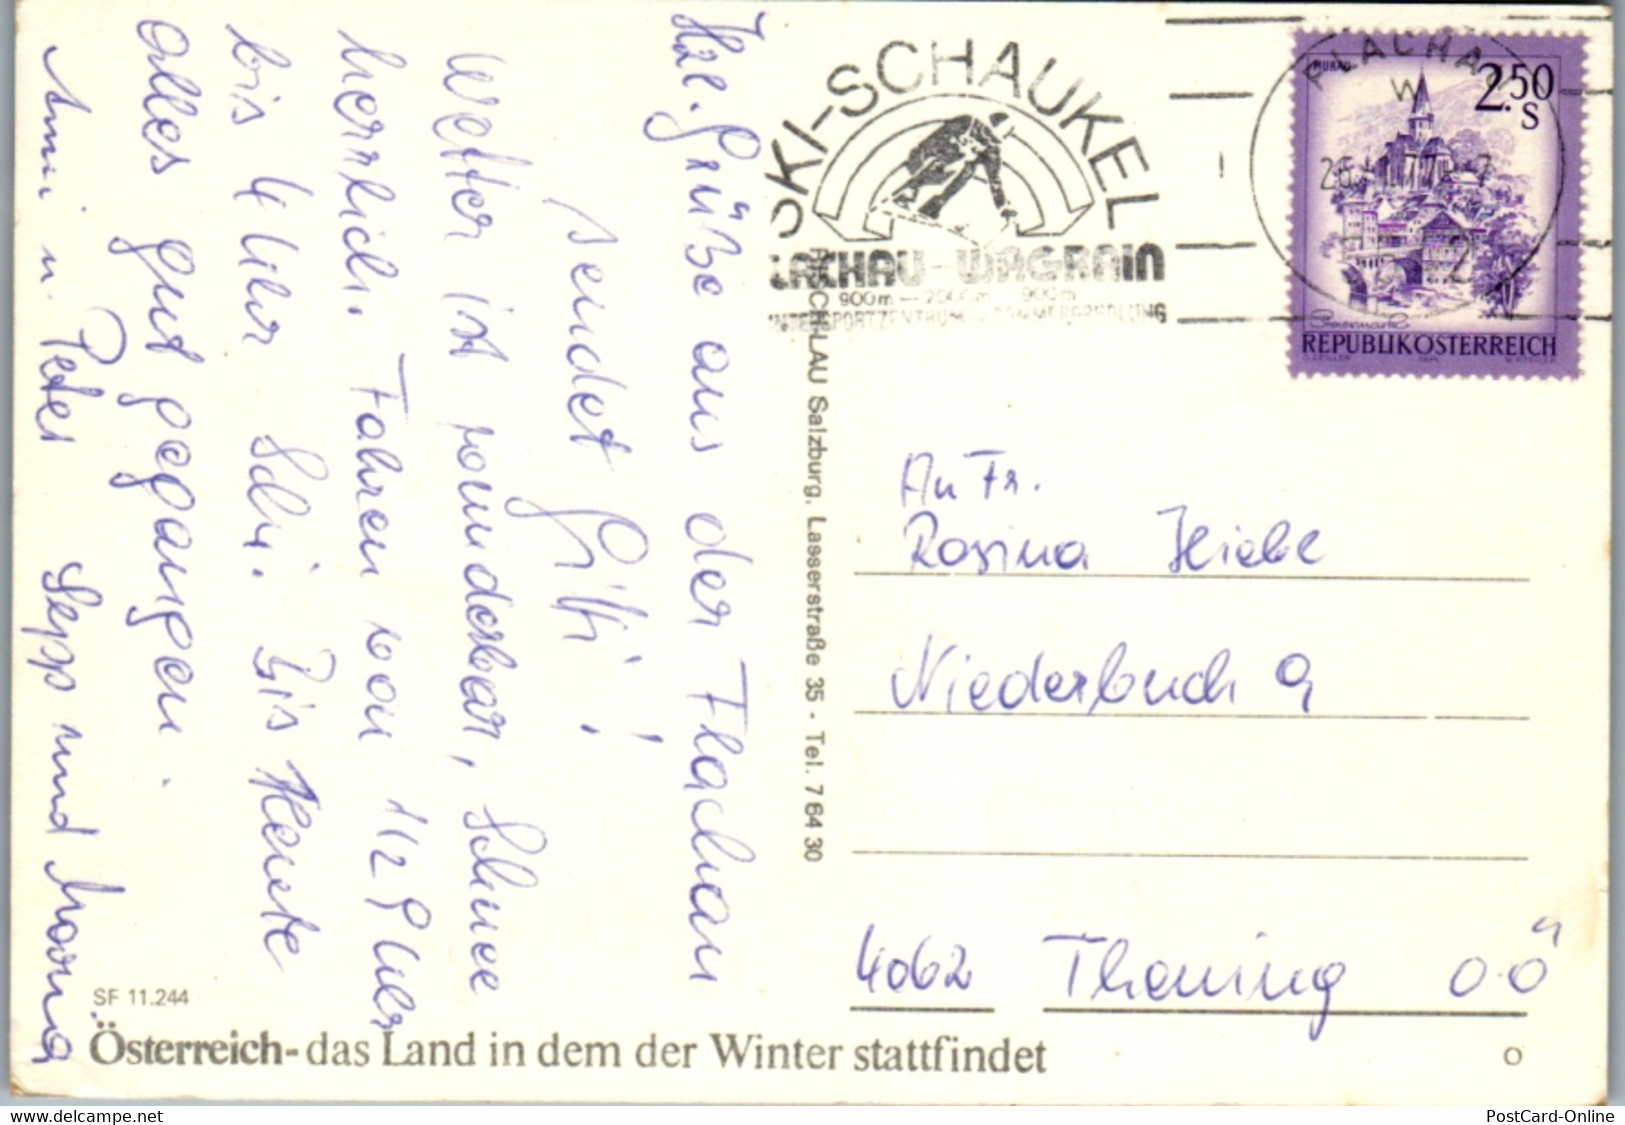 Hzl. Grüße aus der Flachau
sendet Gitti!
Wetter ist wunderbar, Schnee
herrlich. Fahren von 1/2 9 Uhr
bis 4 Uhr Schi. Bis Heute
alles gut gegangen.
Anni u. Peter Sepp und
SKI-SCHAUKEL
FLACHAU-WAGRAIN
900m — 2000m — 900m
FLACHAU
2.50
S
MURAU
Steiermark
REPUBLIK ÖSTERREICH
SCHLAU Salzburg, Lasserstraße 35 - Tel. 7 64 30
An Fr.
Rosina Hiebl
Niederbuch 9
4062 Thening OÖ
SF 11.244
Österreich - das Land in dem der Winter stattfindet
O
www.delcampe.net
PostCard-Online